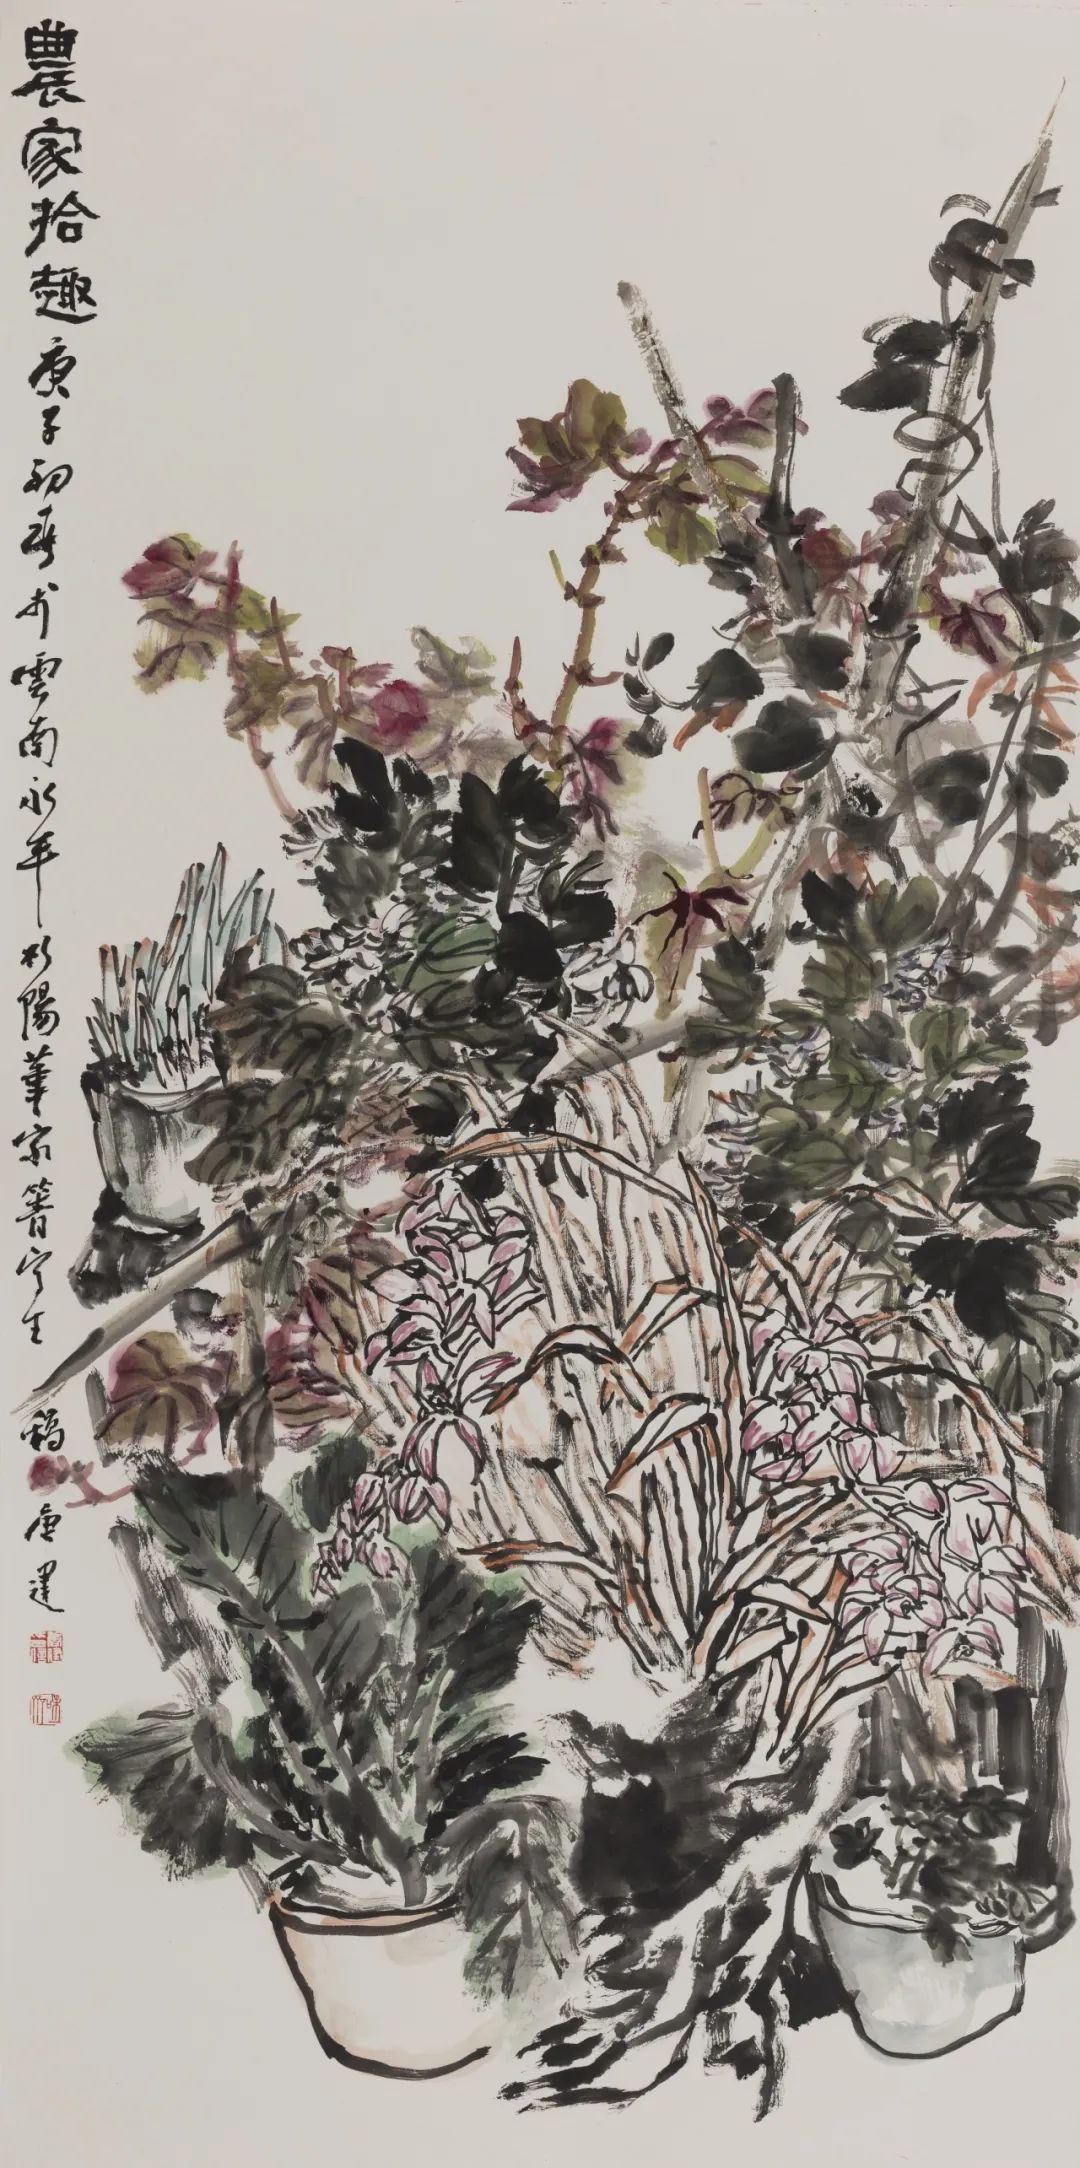 農家拾趣
庚子初春于雲南永平杉陽華家箐寫生
稿唐建